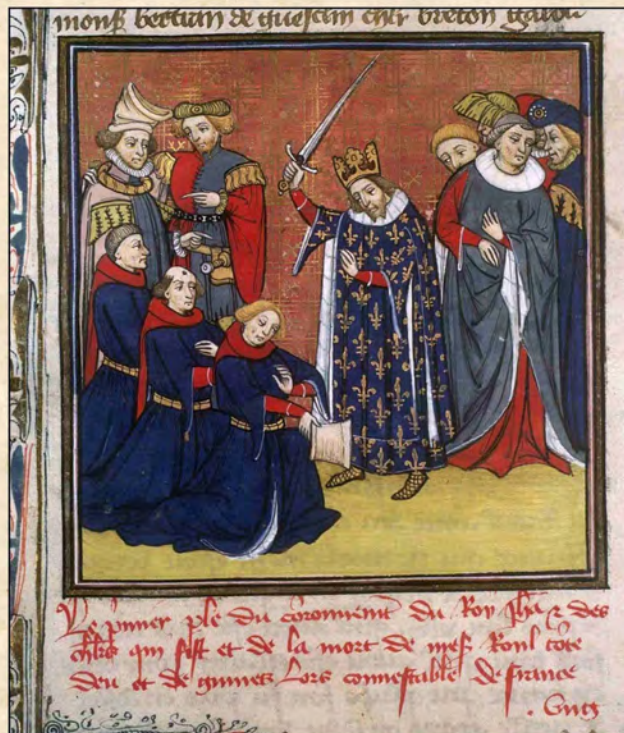 mons bertran de guesclin chlr breton
Le pmier ple du coronnemt du Roy Jhā z des
chlrs qui fist et de la mort de mess Roul cōte
deu et de guines Lors connestable de france